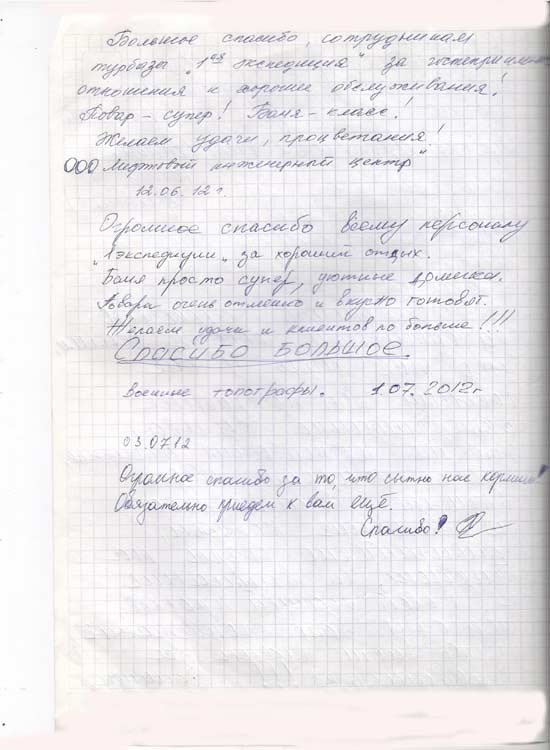 Большое спасибо, сотрудникам
турбазы "1ая экспедиция" за гостеприимное
отношения и хорошие обслуживания!
Повар - супер! Баня - класс!
Желаем удачи, процветания!
ООО Лифтовый инженерный центр"
12.06.12 г.
Огромное спасибо всему персоналу
"1 экспедиции" за хороший отдых.
Баня просто супер, уютные домики.
Повара очень отменно и вкусно готовят.
Желаем удачи и клиентов по больше!!!
Спасибо большое.
военные топографы. 1.07.2012г
03.07.12
Огромное спасибо за то, что сытно нас кормили!
Обязательно приедем к вам ещё.
Спасибо!